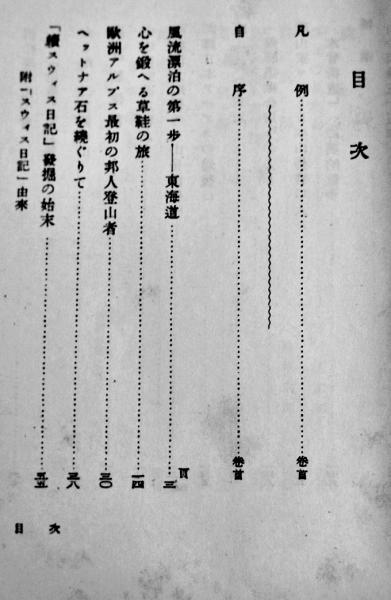 目次
凡例……巻首
自序……巻首
頁
風流漂泊の第一歩――東海道……三
心を鍛へる草鞋の旅……一四
歐洲アルプス最初の邦人登山者……三〇
ヘットナア石を繞ぐりて……三八
「續スウィス日記」發掘の始末……五五
附「スウィス日記」由來
目次